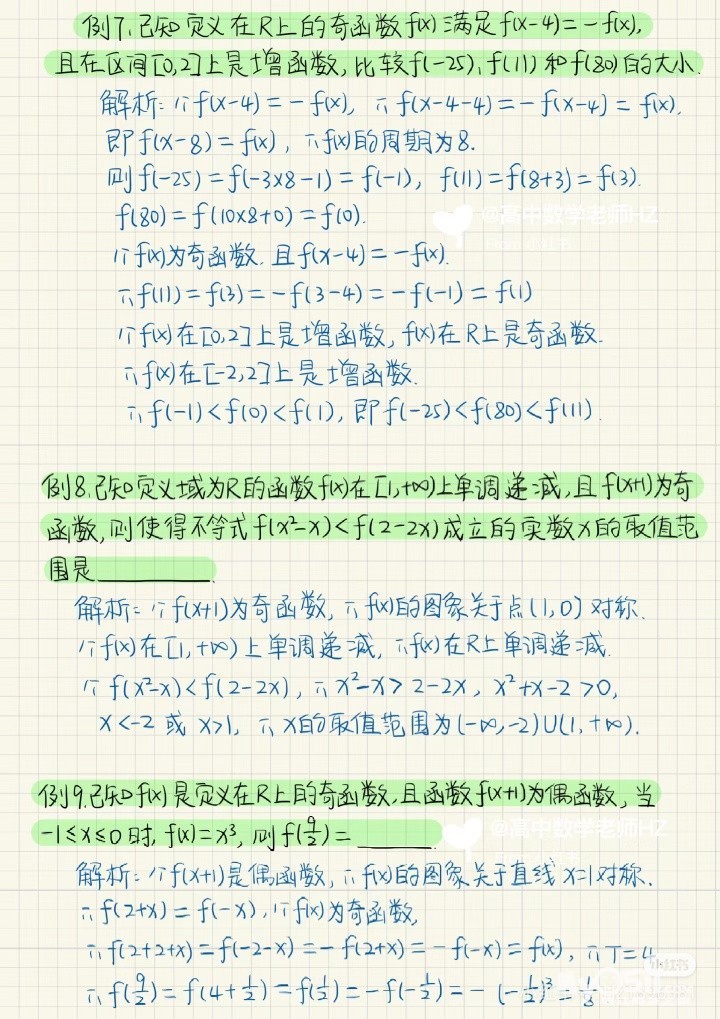 例7、已知定义在R上的奇函数f(x)满足f(x-4)=-f(x),
且在区间[0,2]上是增函数,比较f(-25)、f(11)和f(80)的大小.
解析:∵f(x-4)=-f(x), ∴f(x-4-4)=-f(x-4)=f(x).
即f(x-8)=f(x), ∴f(x)的周期为8.
则f(-25)=f(-3×8-1)=f(-1), f(11)=f(8+3)=f(3).
f(80)=f(10×8+0)=f(0).
@高中数学老师HZ
∵f(x)为奇函数.且f(x-4)=-f(x).
∴f(11)=f(3)=-f(3-4)=-f(-1)=f(1)
∵f(x)在[0,2]上是增函数,f(x)在R上是奇函数.
∴f(x)在[-2,2]上是增函数.
∴f(-1)<f(0)<f(1),即f(-25)<f(80)<f(11).
例8.已知定义域为R的函数f(x)在[1,+∞)上单调递减,且f(x+1)为奇
函数,则使得不等式f(x²-x)<f(2-2x)成立的实数x的取值范
围是________.
解析:∵f(x+1)为奇函数,∴f(x)的图象关于点(1,0)对称.
∵f(x)在[1,+∞)上单调递减,∴f(x)在R上单调递减.
∵f(x²-x)<f(2-2x),∴x²-x>2-2x,x²+x-2>0,
x<-2或x>1, ∴x的取值范围为(-∞,-2)∪(1,+∞).
例9.已知f(x)是定义在R上的奇函数,且函数f(x+1)为偶函数,当
-1≤x≤0时,f(x)=x³,则f(9/2)=________.
@高中数学老师HZ
解析:∵f(x+1)是偶函数,∴f(x)的图象关于直线x=1对称.
∴f(2+x)=f(-x),∵f(x)为奇函数,
∴f(2+2+x)=f(-2-x)=-f(2+x)=-f(-x)=f(x),∴T=4
小红书
∴f(9/2)=f(4+1/2)=f(1/2)=-f(-1/2)=-(-1/2)³=1/8